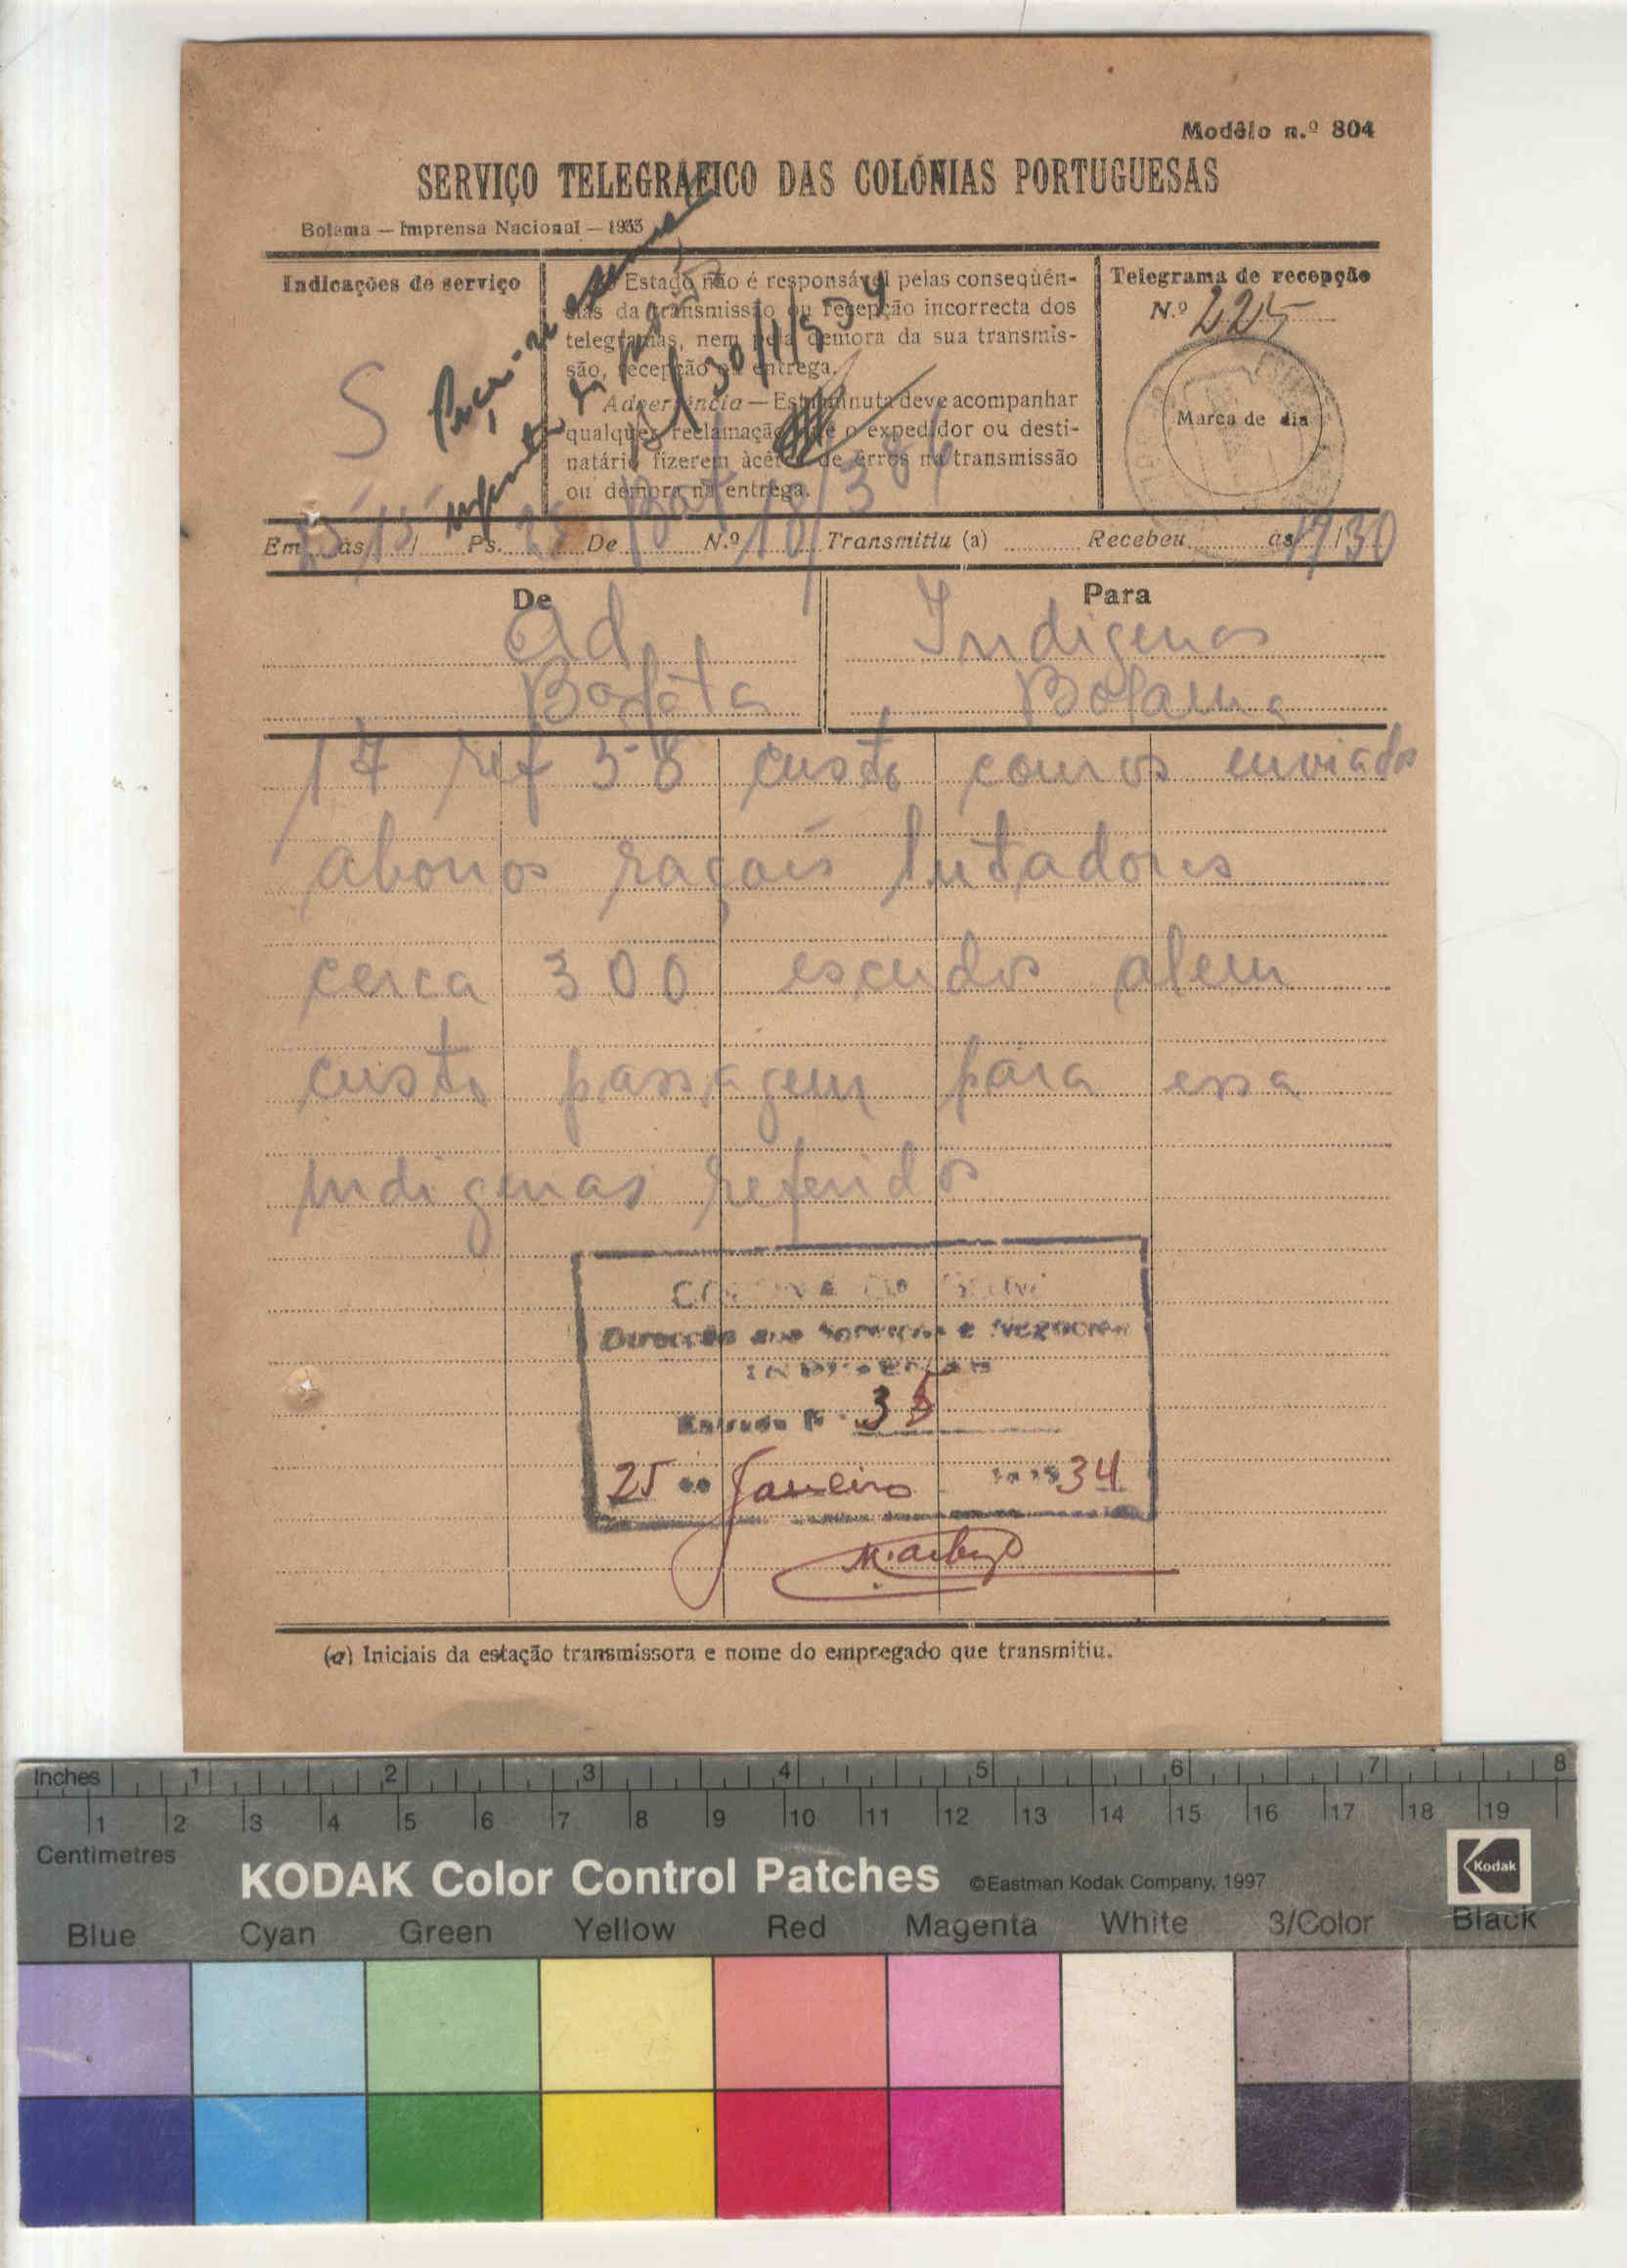 Modêlo n.º 804
SERVIÇO TELEGRÁFICO DAS COLÓNIAS PORTUGUESAS
Bolama — Imprensa Nacional — 1933
Indicações de serviço
S
O Estado não é responsável pelas conseqüên-
cias da transmissão ou recepção incorrecta dos
telegramas, nem pela demora da sua transmis-
são, recepção ou entrega.
Advertência — Esta minuta deve acompanhar
qualquer reclamação que o expedidor ou desti-
natário fizerem àcêrca de erros na transmissão
ou demora na entrega.
30/1/934
Telegrama de recepção
N.º 225
Marca de dia
Em às 15 / Ps. 25 De Baf N.º 18/386 Transmitiu (a) Recebeu às 17/30
De
Ad
Bafata
Para
Indigenas
Bolama
17 ref 3-8 custo couros enviados
abonos raçois lutadores
cerca 300 escudos alem
custo passagem para essa
indigenas referidos
Direcção dos Serviços e Negocios
INDIGENAS
Entrada N.º 35
25 de Janeiro de 1934
(a) Iniciais da estação transmissora e nome do empregado que transmitiu.
Inches 1 2 3 4 5 6 7 8
1 2 3 4 5 6 7 8 9 10 11 12 13 14 15 16 17 18 19
Centimetres
KODAK Color Control Patches ©Eastman Kodak Company, 1997
Kodak
Blue Cyan Green Yellow Red Magenta White 3/Color Black